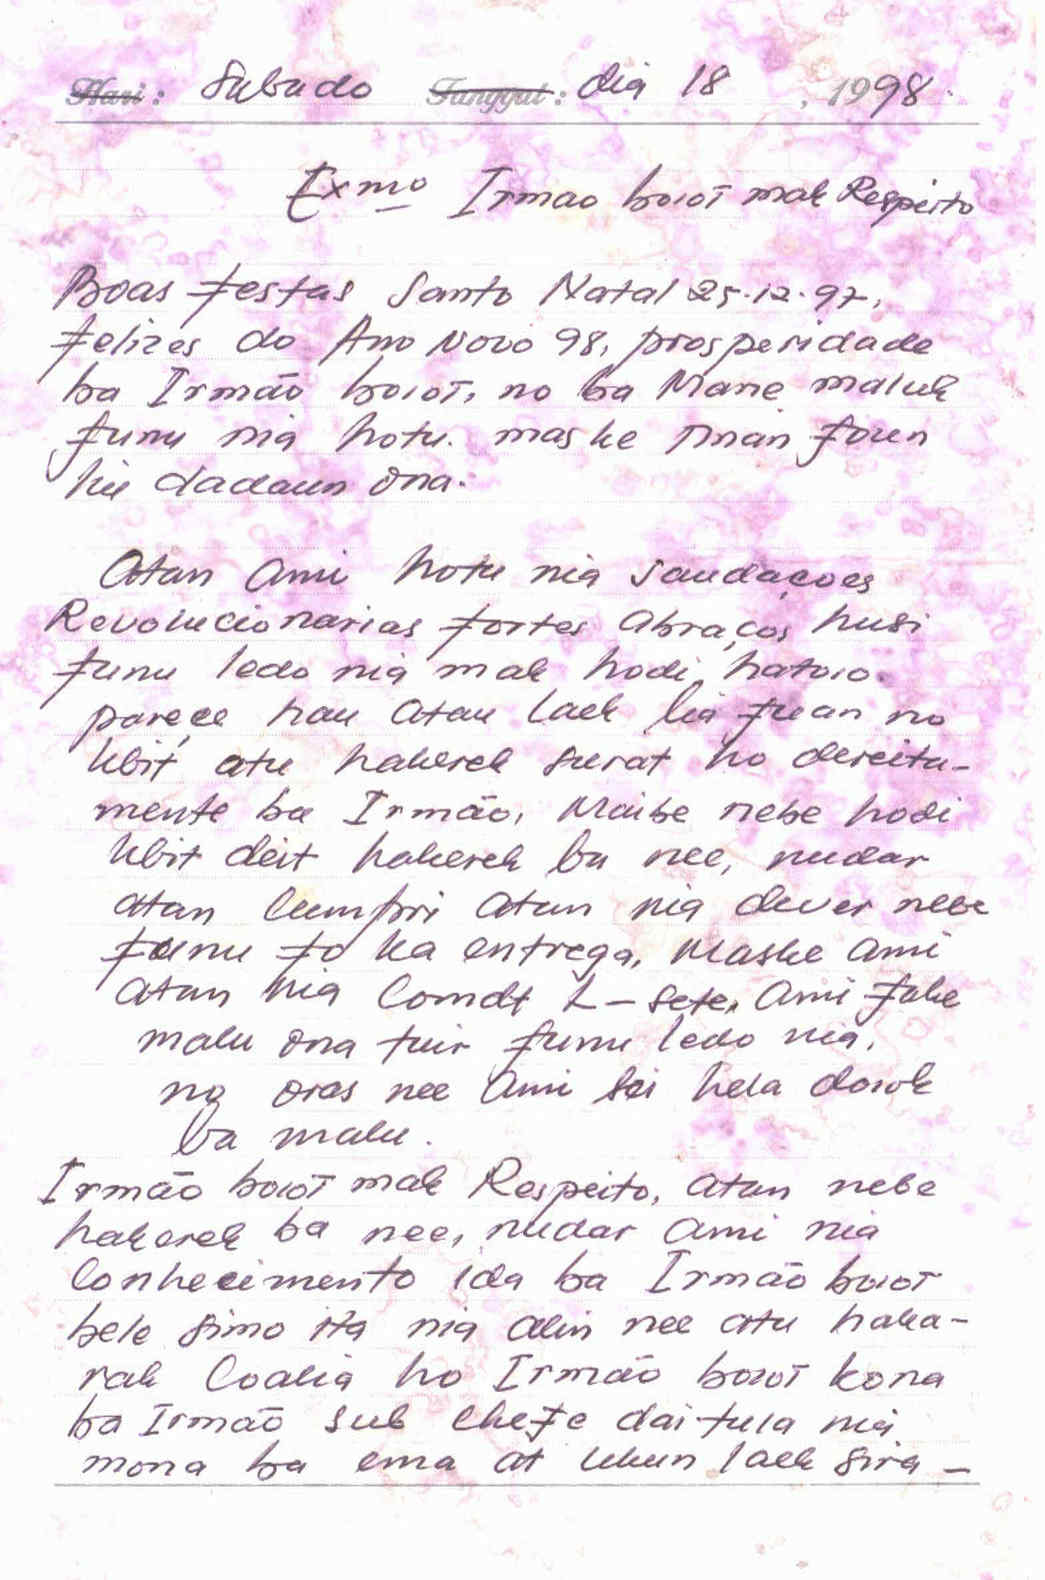 Hari : Sabado Tanggal : dia 18 , 1998.
Exmo Irmao boiot mak Respeito
Boas Festas Santo Natal 25.12.97,
Felizes do Ano Novo 98, prosperidade
ba Irmão boiot, no ba Mane maluk
Funu nia hotu. maske tinan foun
hu dadaun ona.
Atan Ami hotu nia saudaçoes
Revolucionarias Fortes abraços husi
Funu ledo nia mak hodi hatoio.
pareçe hau atau laek lia fuan no
kbit atu hakerek surat ho dereita-
mente ba Irmão, Maibe nebe hodi
kbit deit hakerek ba nee, nudar
atan Cumpri atan nia dever nebe
Funu fo ka entrega, Maske ami
atan nia Comdt L-Sete, Ami fahe
malu ona tuir funu ledo nia,
no oras nee Ami sei hela dook
ba malu.
Irmão boiot mak Respeito, atan nebe
hakerek ba nee, nudar Ami nia
Conhecimento ida ba Irmão boiot
bele simo ita nia alin nee atu haka-
rak Coalia ho Irmão boiot kona
ba Irmão sub chefe dai-tula nia
mona ba ema at ukun laek sira -